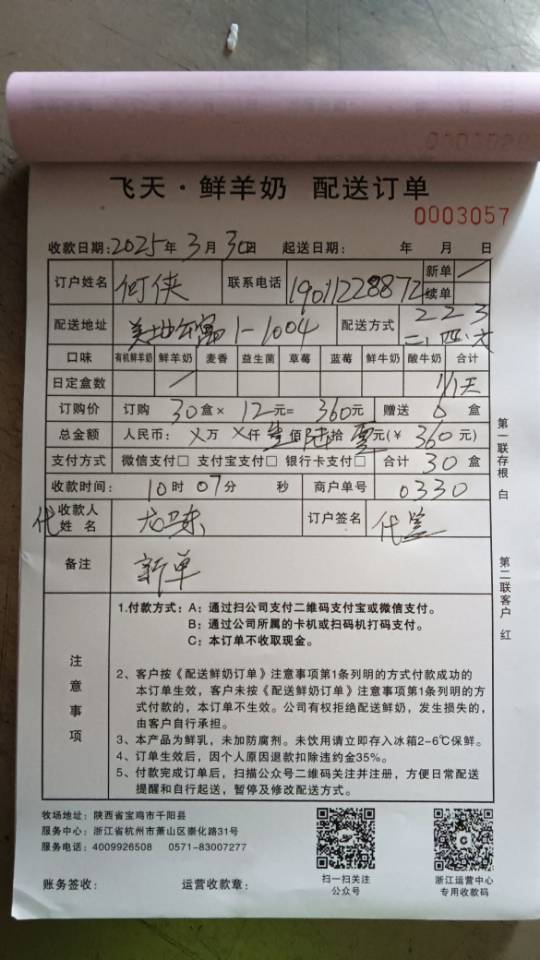 飞天·鲜羊奶 配送订单
0003057
收款日期:2025年 3月 30日 起送日期: 年 月 日
订户姓名 何侠 联系电话 19011228872 新单 / 续单
配送地址 美地公寓 1-1004 配送方式 2 2 3 二、四、六
口味 有机鲜羊奶 鲜羊奶 麦香 益生菌 草莓 蓝莓 鲜牛奶 酸牛奶 合计
日定盒数 / 1/1天
订购价 订购 30 盒× 12 元= 360元 赠送 0 盒
总金额 人民币: ×万 ×仟 叁佰 陆拾 零元(¥ 360 元)
支付方式 微信支付□ 支付宝支付□ 银行卡支付□ 合计 30 盒
收款时间: 10时 07分 秒 商户单号 0330
代 收款人姓名 订户签名 代签
备注 新单
注意事项
1.付款方式:A:通过扫公司支付二维码支付宝或微信支付。
B:通过公司所属的卡机或扫码机打码支付。
C:本订单不收取现金。
2、客户按《配送鲜奶订单》注意事项第1条列明的方式付款成功的
本订单生效,客户未按《配送鲜奶订单》注意事项第1条列明的方
式付款的,本订单不生效。公司有权拒绝配送鲜奶,发生损失的,
由客户自行承担。
3、本产品为鲜乳,未加防腐剂。未饮用请立即存入冰箱2-6℃保鲜。
4、订单生效后,因个人原因退款扣除违约金35%。
5、付款完成订单后,扫描公众号二维码关注并注册,方便日常配送
提醒和自行起送,暂停及修改配送方式。
第一联存根 白
第二联客户 红
牧场地址:陕西省宝鸡市千阳县
服务中心:浙江省杭州市萧山区崇化路31号
服务电话:4009926508 0571-83007277
账务签收: 运营收款章:
扫一扫关注
公众号
浙江运营中心
专用收款码